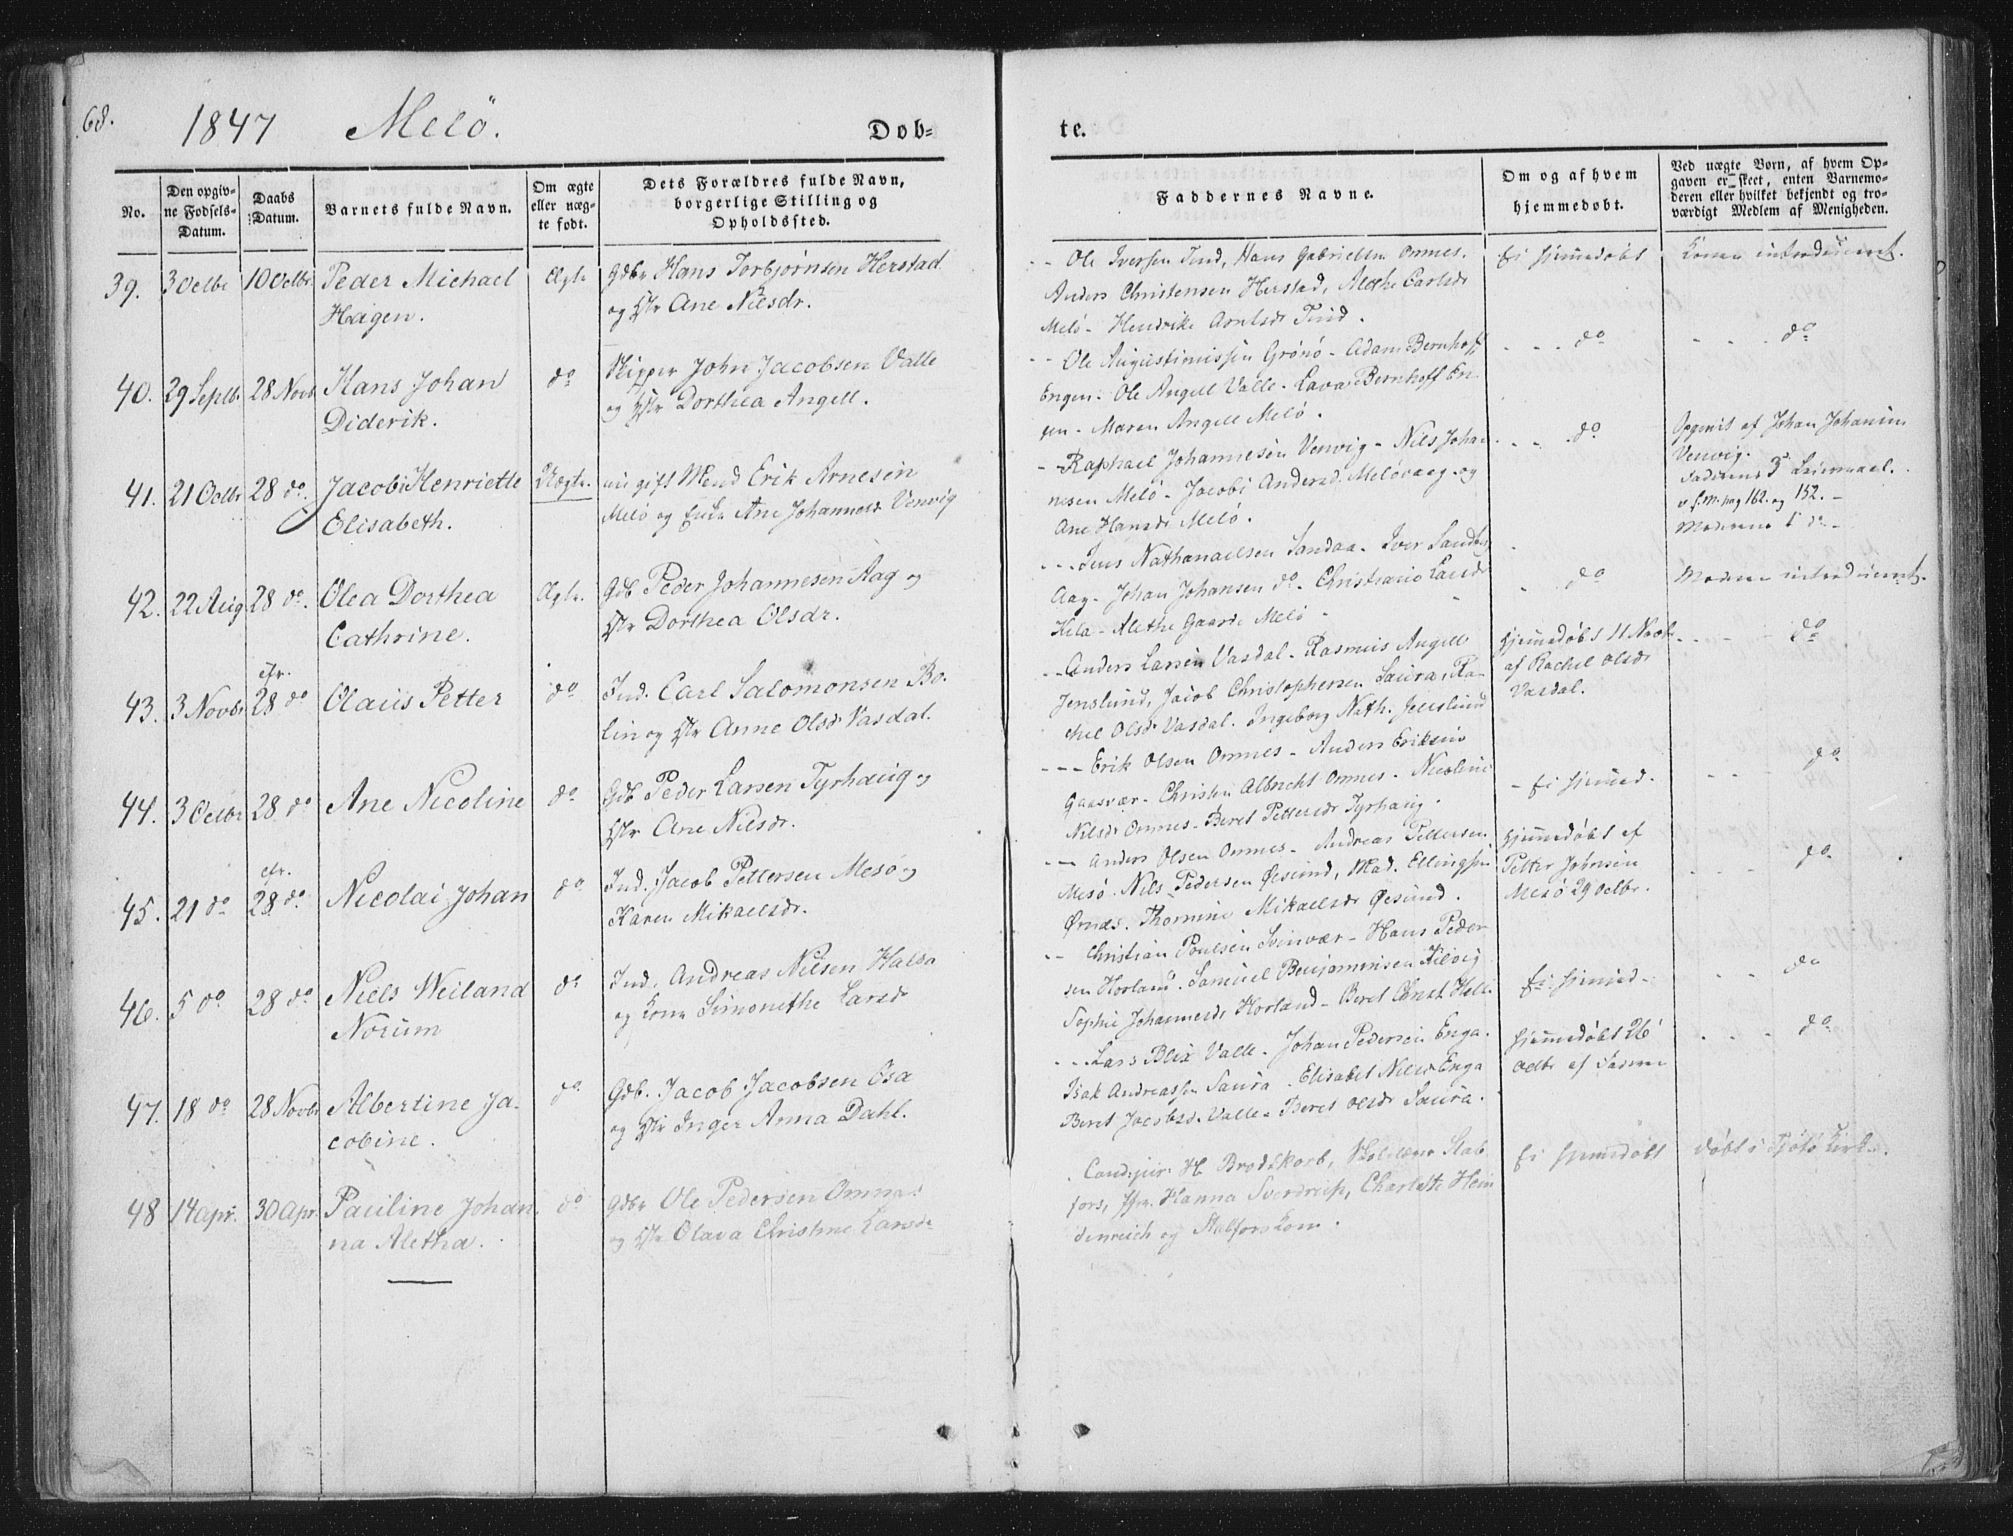 68.
1847 Melö.
Döb=
te.
No.
Den opgiv-
ne Fødsels-
Datum.
Daabs
Datum.
Barnets fulde Navn.
Om ægte
eller uæg-
te født.
Dets Forældres fulde Navn,
borgerlige Stilling og
Opholdssted.
Faddernes Navne.
Om og af hvem
hjemmedøbt.
Ved uægte Børn, af hvem Op-
gaven er skeet, enten Barnemo-
deren eller hvilket bekjendt og tro-
værdigt Medlem af Menigheden.
39. 3 Octbr 10 Octbr. Peder Michael
Hagen.
Ægte
Gdbr Hans Torbjørnsen Herstad
og Hstr Ane Nilsdr.
Ole Iversen Tind, Hans Gabrielsen Onnes.
Anders Christensen Herstad, Alethe Carlsdr
Melö - Hendrike Arntsdr Tind.
Ei hjemmedöbt
Konen introduceret.
40. 29 Septbr. 28 Novb. Hans Johan
Diderik.
do
Skipper John Jacobsen Valle
og Hstr Dorthea Angell.
Ole Augustinussen Grönö - Adam Bernhoff
Engen. Ole Angell Valle - Lava Bernhoff En-
gen - Maren Angell Melö.
do
do
41. 21 Octbr 28 do. Jacobi Henriette
Elisabeth.
Uægte.
ugift Mand Erik Arnesen
Melö og Enke Ane Johannesdr Venvig
Raphael Johannesen Venvig - Nils Johan-
nesen Melö - Jacobi Andersd. Melövaag - og
Ane Hansdr Melö.
do
Opgivet af Johan Johansen
Venvig.
Faderens 3die Leiermaal.
v. f. M. pag 162. og 152. -
Moderens 1 do -
42. 22 Aug 28 do. Olea Dorthea
Cathrine.
Ægte.
Gdb Peder Johannesen Aag og
Hstr Dorthea Olsdr.
Jens Nathanaelsen Sandaa - Iver Sandberg
Aag - Johan Johansen do - Christiane Larsdr
Kila - Alethe Gaarde Melö
do
Moderen introduceret.
43. 3 Novbr
efr.
28 do Olaus Petter
do
Ind. Carl Salomonsen Bo-
lin og Hstr Anne Olsdr Vasdal.
Anders Larsen Vasdal - Rasmus Angell
Jenslund, Jacob Christophersen Saura, Ra-
chel Olsdr Vasdal. Ingeborg Nath. Jenslund
Hjemmedöbt 11 Novbr
af Rachel Olsdr
Vasdal.
do
44. 3 Octbr 28 do Ane Nicoline
do
Gdb Peder Larsen Tyrhaug og
Hstr Ane Nilsdr.
Erik Olsen Onnes - Anders Eriksen
Gaasvær - Christen Albrecht Onnes - Nicoline
Nilsdr Onnes - Beret Pettersdr Tyrhaug.
Ei hjemmed.
do
45. 21 do
efr.
28 do. Nicolai Johan
do
Ind. Jacob Pettersen Mesö og
Karen Mikaelsdr.
Anders Olsen Onnes - Andreas Pettersen
Mesö - Nils Pedersen Øesund, Mad. Ellingsen
Ørnæs. Thomine Mikaelsdr Øesund.
Hjemmedöbt af
Petter Johnsen
Mesö 29 Octbr.
do
46. 5 do 28 do Niels Weiland
Norum
do
Ind. Andreas Nilsen Halsa
og Kone Simonethe Larsdr
Christian Poulsen Svinvær - Hans Peder-
sen Horland. Samuel Benjaminsen Kilvig
Sophie Johannesdr Horland - Beret Christ. Hals.
Ei hjemmed -
do
47. 18 do 28 Novbr Albertine Ja-
cobine.
do
Gdb. Jacob Jacobsen Osa
og Hstr Inger Anna Dahl.
Lars Blix Valle - Johan Pedersen Enga.
Isak Andreassen Saura. Elisabet Nilsd. Enga
Beret Jacobsd. Valle - Beret Olsdr Saura.
Hjemmedöbt 26
Octbr af Faderen
do
48 14 Apr. 30 Apr. Pauline Johan-
na Aletha.
do
Gdbr Ole Pedersen Onnes
og Hstr Olava Christine Larsdr
Cand. jur. H. Brodtkorb, Skolelærer Stab-
fors, Jfr. Hanna Sverdrup, Charlotte Hein
denreich og Stalfors Kone.
Ei hjemmedöbt
Döbt i Tjötö Kirke.